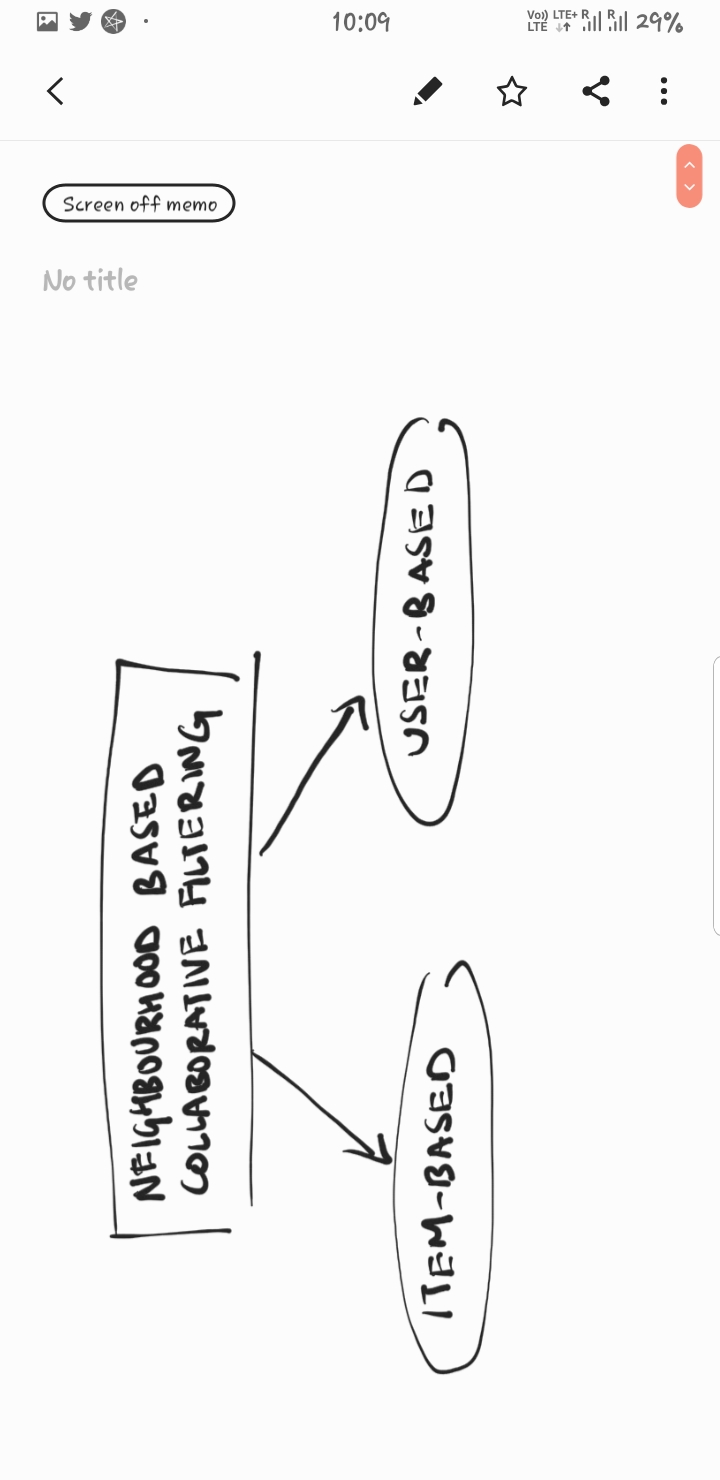 10:09
Vo)) LTE+ R R 29%
LTE
Screen off memo
No title
NEIGHBOURHOOD BASED
COLLABORATIVE FILTERING
ITEM-BASED
USER-BASED